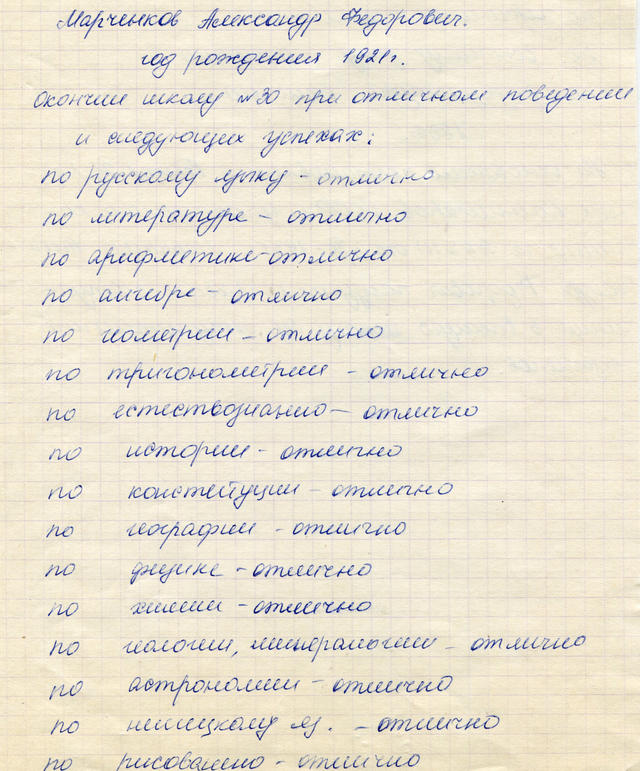 Марченков Александр Федорович.
год рождения 1921г.
окончил школу №30 при отличном поведении
и следующих успехах:
по русскому языку - отлично
по литературе - отлично
по арифметике - отлично
по алгебре - отлично
по геометрии - отлично
по тригонометрии - отлично
по естествознанию - отлично
по истории - отлично
по конституции - отлично
по географии - отлично
по физике - отлично
по химии - отлично
по геологии, минералогии - отлично
по астрономии - отлично
по немецкому яз. - отлично
по рисованию - отлично